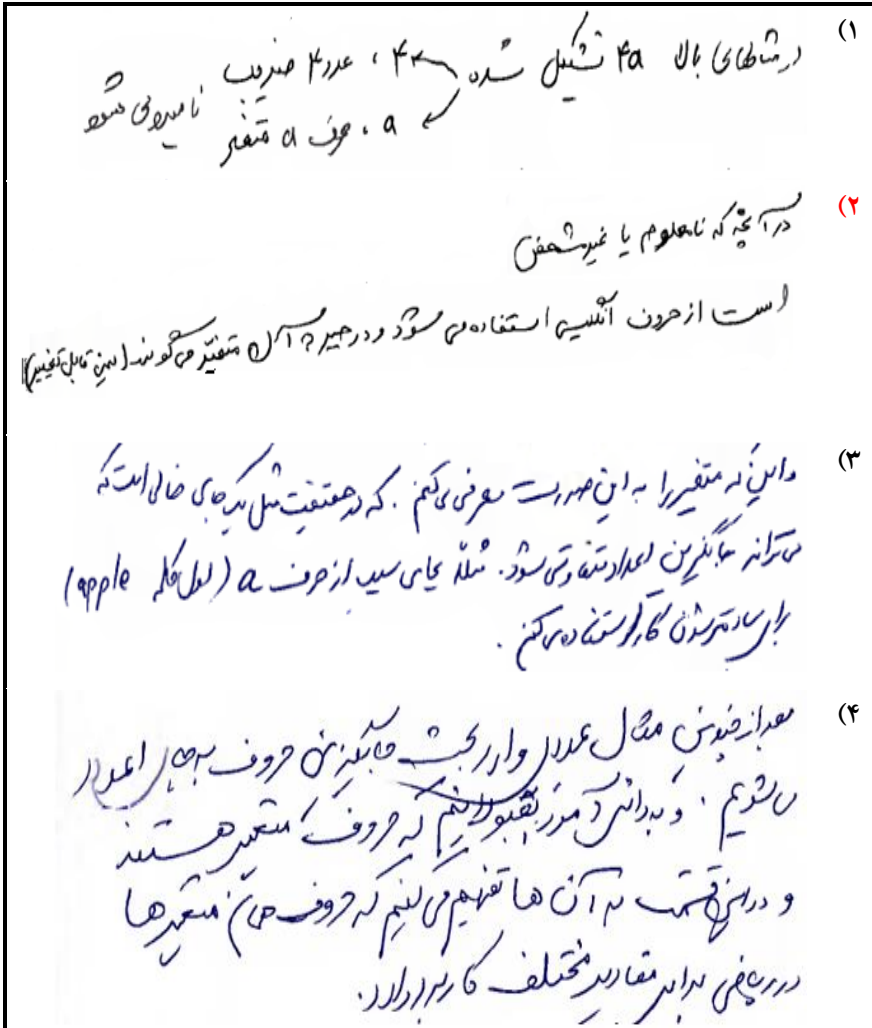 ۱)
در مثالهای بالا ۴a تشکیل شده ۴، عدد ۴ ضریب
a، حرف a متغیر نامیده می شود
۲)
در آنچه که نامعلوم یا غیرمشخص
است از حروف انگلیسی استفاده می شود و در جبر به آن متغیّر می گویند (یعنی قابل تغییر)
۳)
و این که متغیر را به این صورت معرفی می کنم. که در حقیقت مثل یک جای خالی است که
می تواند جایگزین اعداد متفاوتی شود. مثلاً بجای سیب از حرف a (اول کلمه apple)
برای ساده تر شدن کار استفاده می کنم.
۴)
بعد از چندین مثال عددی وارد بحث جایگزینی حروف به جای اعداد
می شویم. و به دانش آموز بقبولانیم که حروف متغیر هستند
و در این قسمت به آن ها تفهیم می کنیم که حروف متغیرها
در ریاضی برای مقادیر مختلف کاربرد دارد.